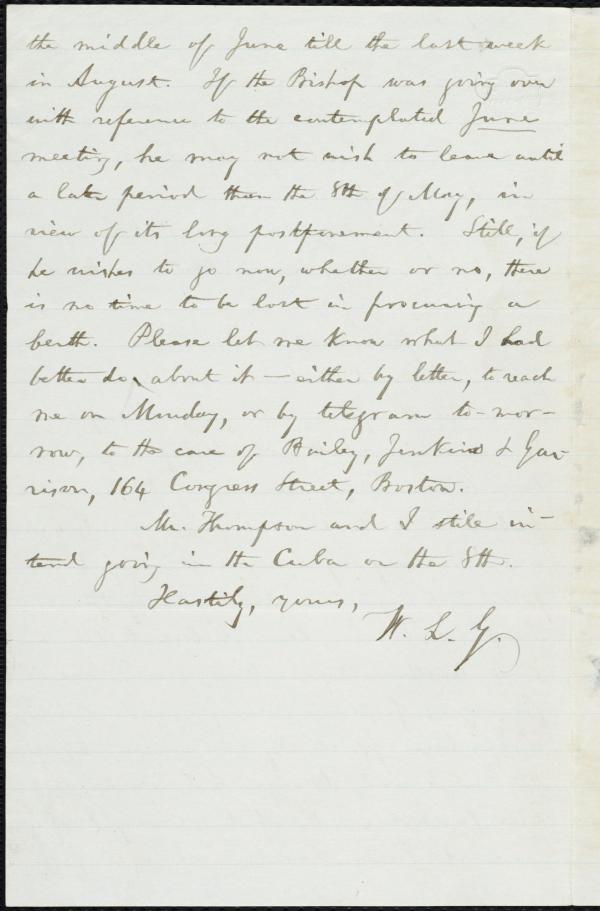 the middle of June till the last week
in August. If the Bishop was going over
with reference to the contemplated June
meeting, he may not wish to leave until
a late period than the 8th of May, in
view of its long postponement. Still, if
he wishes to go now, whether or no, there
is no time to be lost in procuring a
berth. Please let me know what I had
better do, about it — either by letter, to reach
me on Monday, or by telegram to-mor-
row, to the care of Bailey, Jenkins & Gar-
rison, 164 Congress Street, Boston.
Mr. Thompson and I still in-
tend going in the Cuba on the 8th.
Hastily, yours,
W. L. G.